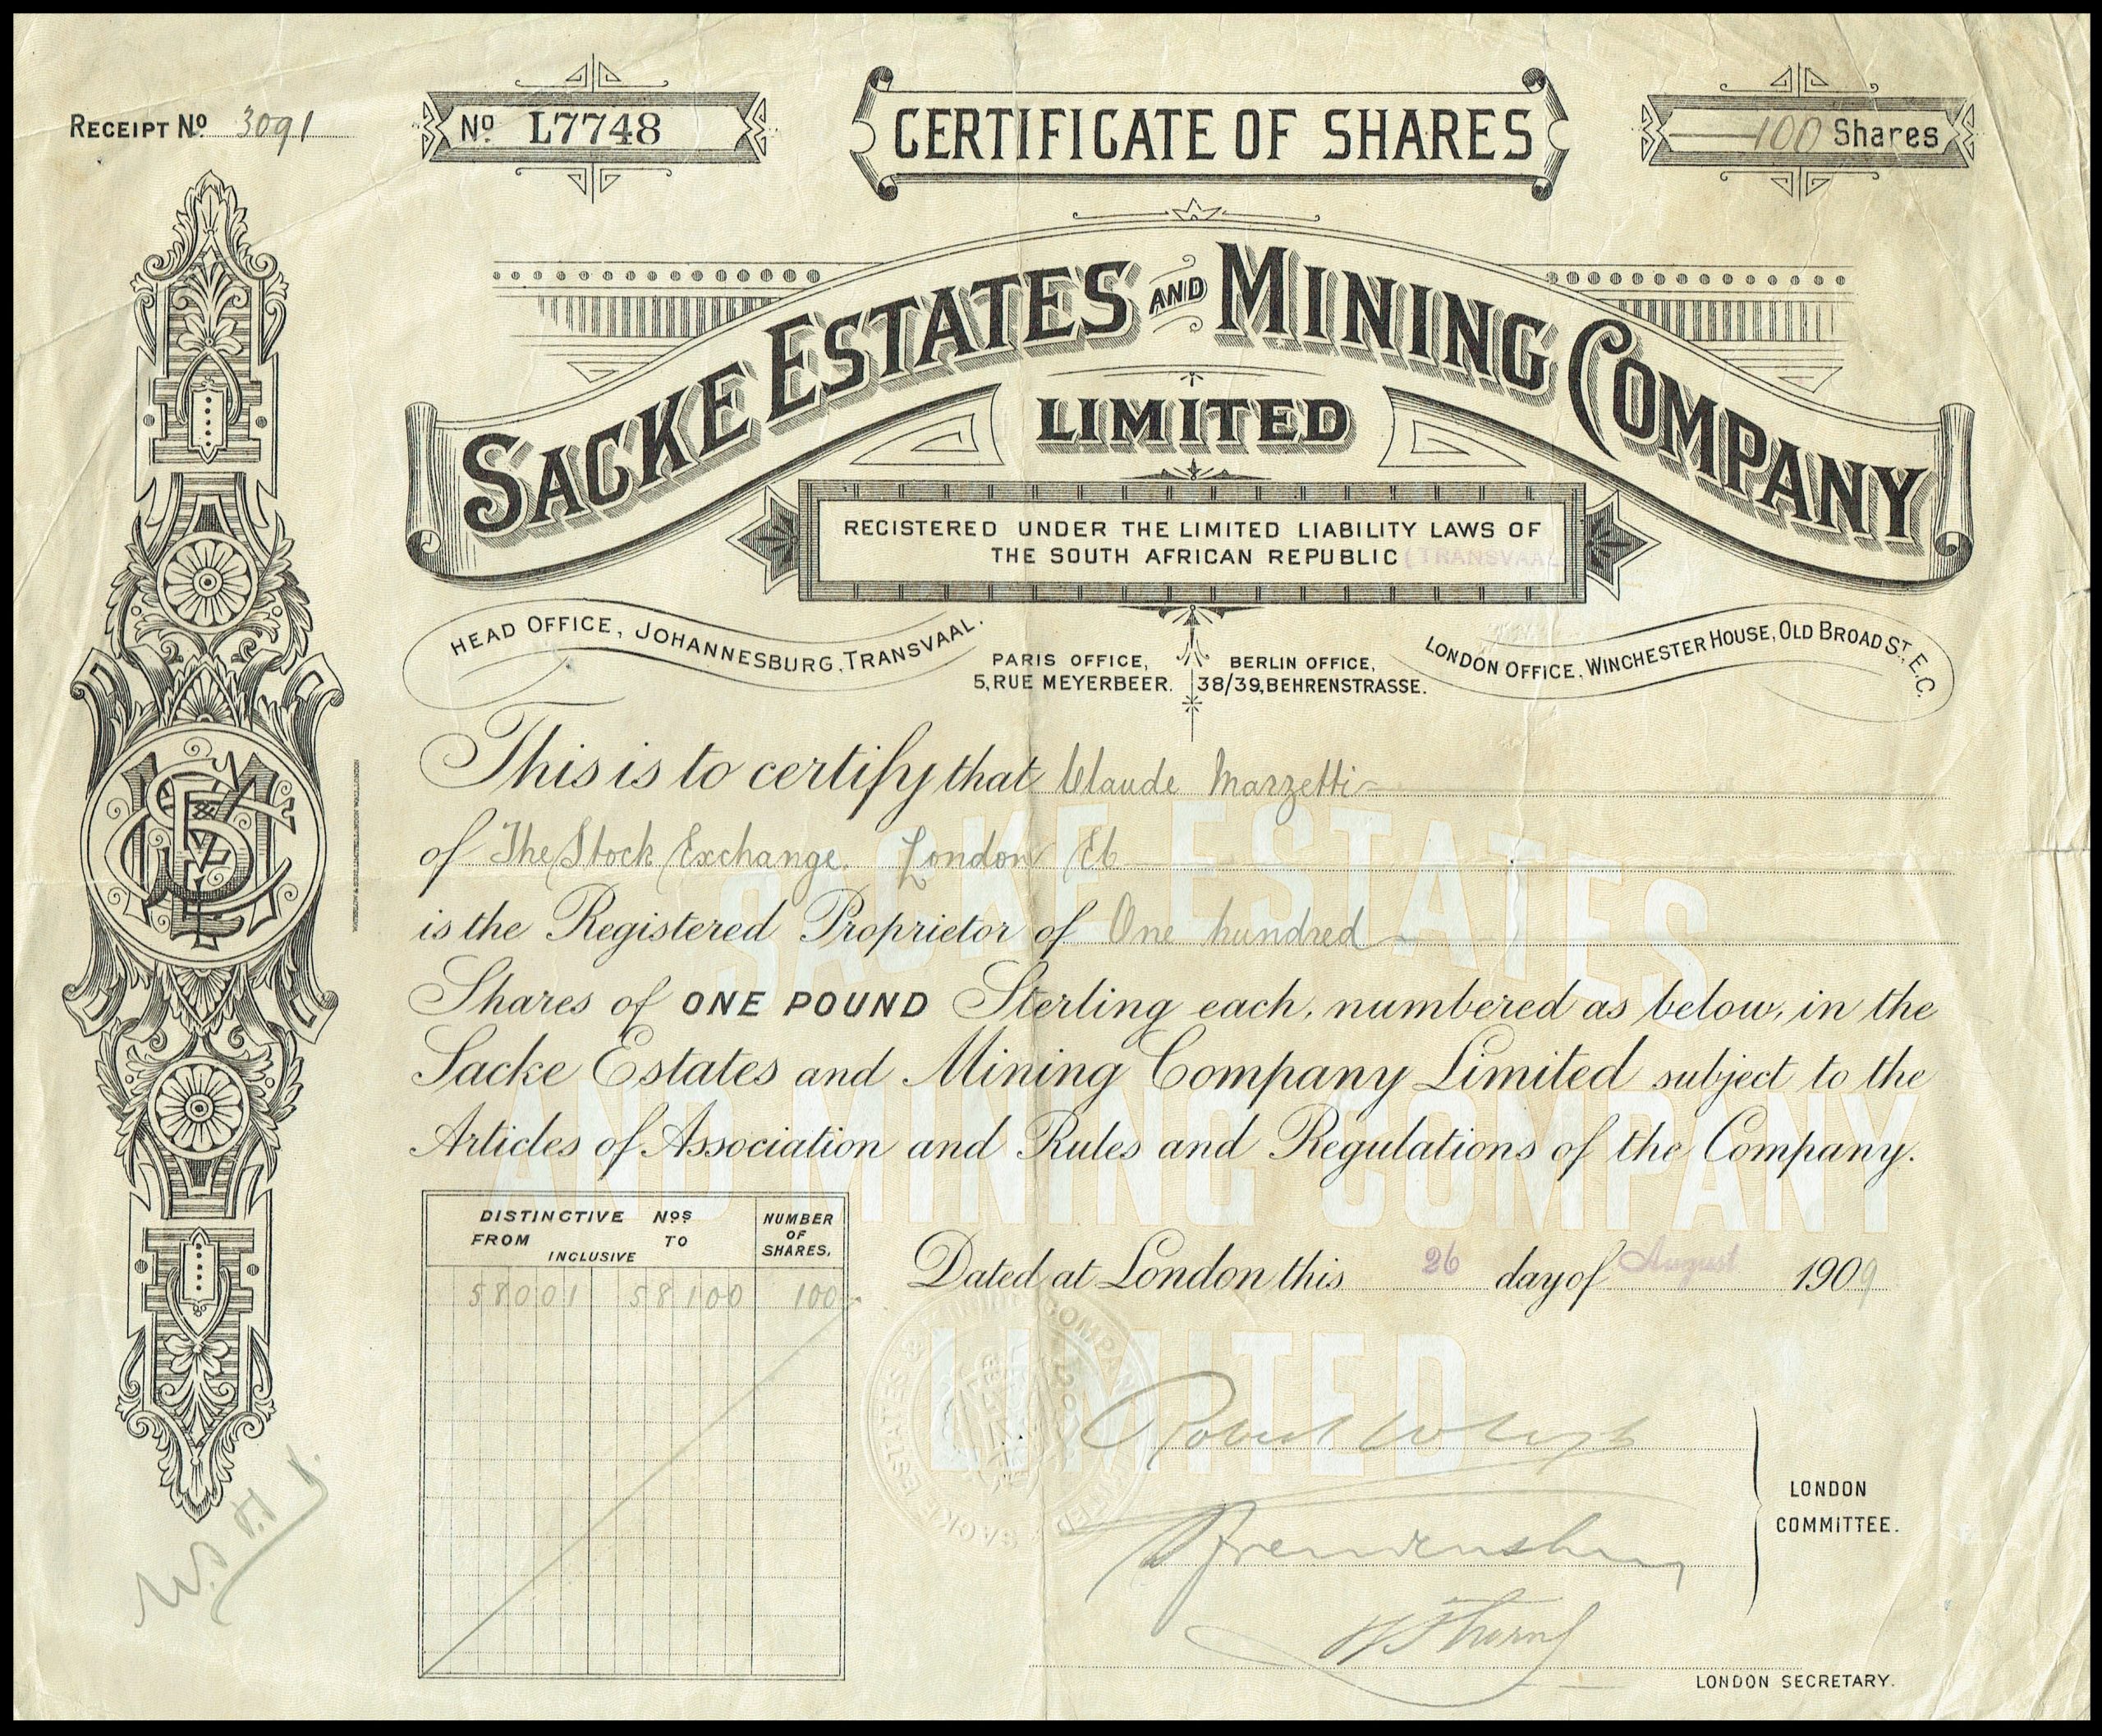 RECEIPT No 3091
No L7748
CERTIFICATE OF SHARES
100 Shares
SACKE ESTATES AND MINING COMPANY
LIMITED
REGISTERED UNDER THE LIMITED LIABILITY LAWS OF
THE SOUTH AFRICAN REPUBLIC (TRANSVAAL
HEAD OFFICE, JOHANNESBURG, TRANSVAAL.
PARIS OFFICE,
5, RUE MEYERBEER.
BERLIN OFFICE,
38/39, BEHRENSTRASSE.
LONDON OFFICE, WINCHESTER HOUSE, OLD BROAD ST., E.C.
This is to certify that Claude Marzetti
of The Stock Exchange. London EC
is the Registered Proprietor of One hundred
Shares of ONE POUND Sterling each, numbered as below, in the
Sacke Estates and Mining Company Limited subject to the
Articles of Association and Rules and Regulations of the Company.
SACKE ESTATES
AND MINING COMPANY
LIMITED
DISTINCTIVE Nos
FROM TO
INCLUSIVE
NUMBER
OF
SHARES.
58001 58100 100
Dated at London this 26 day of August 1909
LONDON
COMMITTEE.
LONDON SECRETARY.